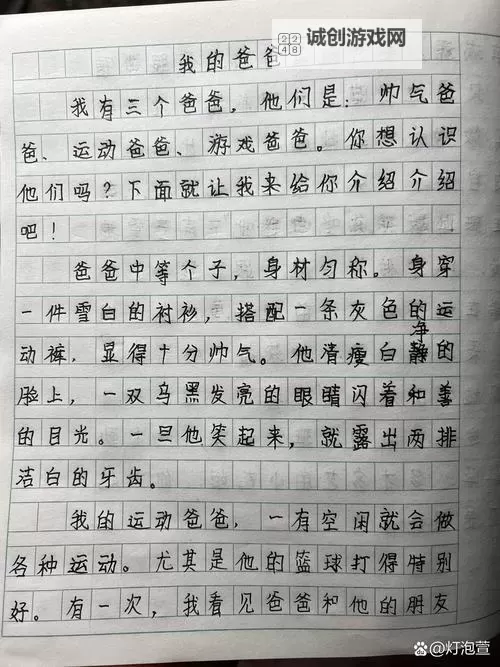 诚创游戏网
2248
我的爸爸
我有三个爸爸，他们是：帅气爸
爸、运动爸爸、游戏爸爸。你想认识
他们吗？下面就让我来给你介绍介绍
吧！
爸爸中等个子，身材匀称。身穿
一件雪白的衬衫，搭配一条灰色的运
动裤，显得十分帅气。他清瘦白静的
净
脸上，一双乌黑发亮的眼睛闪着和善
的目光。一旦他笑起来，就露出两排
洁白的牙齿。
我的运动爸爸，一有空闲就会做
各种运动。尤其是他的篮球打得特别
好。有一次，我看见爸爸和他的朋友
@灯泡萱